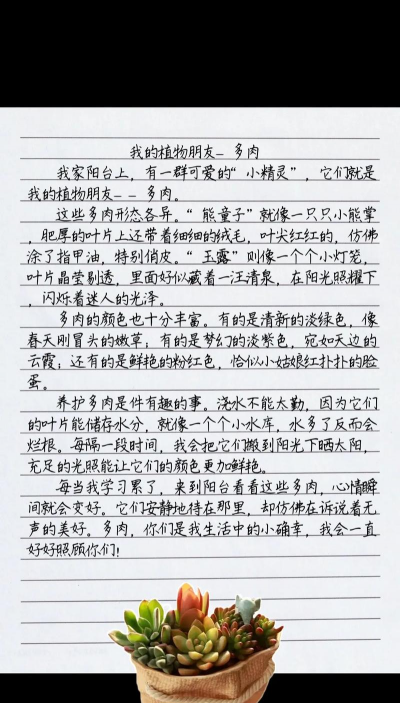 我的植物朋友-多肉
我家阳台上，有一群可爱的“小精灵”，它们就是
我的植物朋友--多肉。
这些多肉形态各异。“熊童子”就像一只只小熊掌
，肥厚的叶片上还带着细细的绒毛，叶尖红红的，仿佛
涂了指甲油，特别俏皮。“玉露”则像一个个小灯笼，
叶片晶莹剔透，里面好似藏着一汪清泉，在阳光照耀下
，闪烁着迷人的光泽。
多肉的颜色也十分丰富。有的是清新的淡绿色，像
春天刚冒头的嫩草；有的是梦幻的淡紫色，宛如天边的
云霞；还有的是鲜艳的粉红色，恰似小姑娘红扑扑的脸
蛋。
养护多肉是件有趣的事。浇水不能太勤，因为它们
的叶片能储存水分，就像一个个小水库，水多了反而会
烂根。每隔一段时间，我会把它们搬到阳光下晒太阳，
充足的光照能让它们的颜色更加鲜艳。
每当我学习累了，来到阳台看看这些多肉，心情瞬
间就会变好。它们安静地待在那里，却仿佛在诉说着无
声的美好。多肉，你们是我生活中的小确幸，我会一直
好好照顾你们！